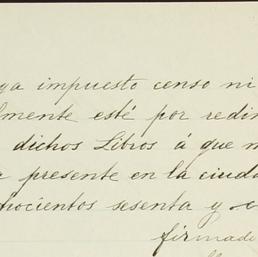 ga impuesto censo ni
lmente esté por redi
dichos Libros á que m
presente en la ciuda
nocientos sesenta y
firmado